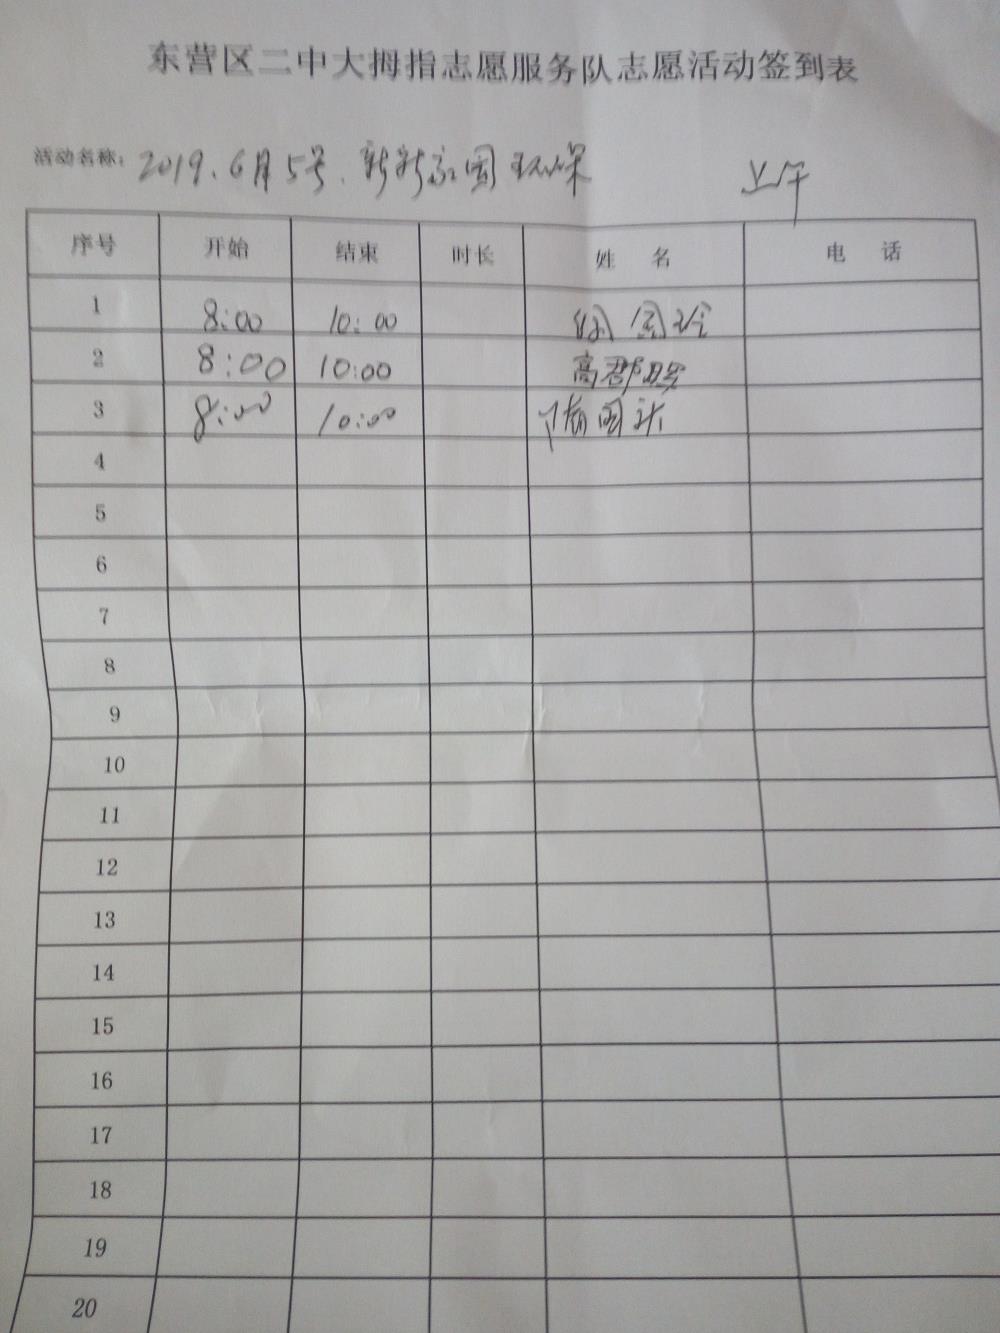 东营区二中大拇指志愿服务队志愿活动签到表
活动名称：2019.6月5号.新新家园环保 上午
序号 开始 结束 时长 姓名 电话
1 8:00 10:00
2 8:00 10:00 高郡
3 8:00 10:00 国
4
5
6
7
8
9
10
11
12
13
14
15
16
17
18
19
20